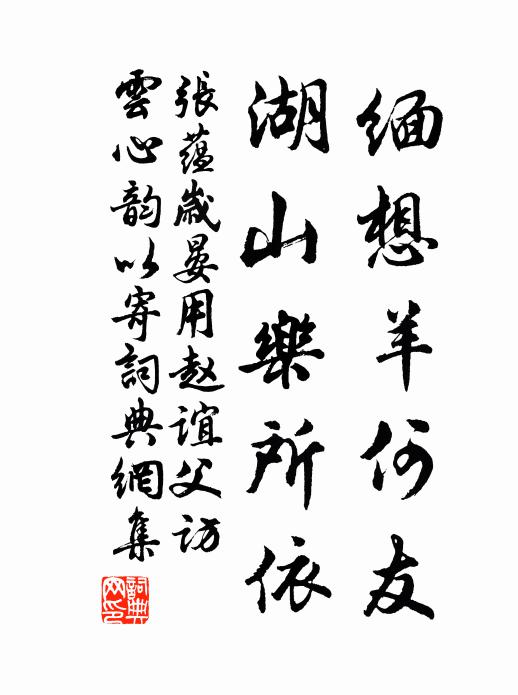 缅想羊何友
湖山樂所依
張蕴歲晏用赵誼父访
雲心韵以寄詞典網集
詞典
网印